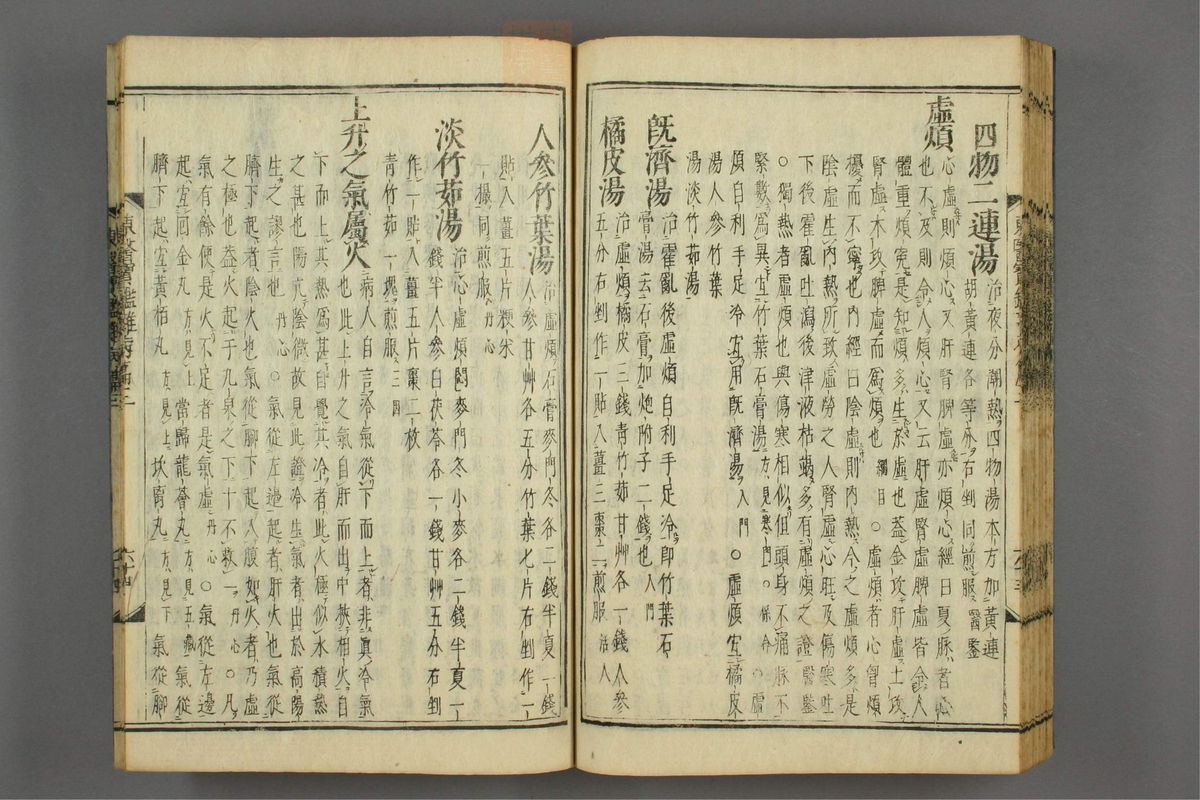 四物二連湯 治夜分潮熱四物湯本方加黃連
胡黃連各等分右剉同煎服 醫鑒
虛煩 心虛則煩心又肝腎脾虛亦煩心經曰夏脉者心
也不及則令人煩心又云肝虛腎虛脾虛皆令人
體重煩寃是知煩多生於虛也蓋金攻肝虛土攻
腎虛木攻脾虛而爲煩也 綱目 ○虛煩者心胷煩
擾而不寧也內經曰陰虛則內熱今之虛煩多是
陰虛生內熱所致虛勞之人腎虛心旺及傷寒吐
下後霍亂吐瀉後津液枯竭多有虛煩之證 醫鑒
○獨熱者虛煩也與傷寒相似但頭身不痛脉不
緊數爲異宜竹葉石膏湯 方見寒門 ○ 保命 ○虛
煩自利手足冷宜用旣濟湯 入門 ○虛煩宜橘皮
湯人參竹葉
湯淡竹茹湯
旣濟湯 治霍亂後虛煩自利手足冷卽竹葉石
膏湯去石膏加炮附子二錢也 入門
橘皮湯 治虛煩橘皮三錢靑竹茹甘艸各一錢人參
五分右剉作一貼入薑三棗二煎服 活人
人參竹葉湯 治虛煩石膏麥門冬各二錢半夏一錢
人參甘艸各五分竹葉七片右剉作一
貼入薑五片粳米
一撮同煎服 丹心
淡竹茹湯 治心虛煩悶麥門冬小麥各二錢半夏一
錢半人參白茯苓各一錢甘艸五分右剉
作一貼入薑五片棗二枚
靑竹茹一塊煎服 三因
上升之氣屬火 病人自言冷氣從下而上者非眞冷氣
也此上升之氣自肝而出中挾相火自
下而上其熱爲甚自覺其冷者此火極似水積熱
之甚也陽亢陰微故見此證冷生氣者出於高陽
生之謬言也 丹心 ○氣從左邊起者肝火也氣從
臍下起者陰火也氣從脚下起入腹如火者乃虛
之極也蓋火起于九泉之下十不救一 丹心 ○凡
氣有餘便是火不足者是氣虛 丹心 ○氣從左邊
起宜回金丸 方見上 當歸龍薈丸 方見五藏 氣從
臍下起宜黃栢丸 方見上 坎离丸 方見下 氣從脚